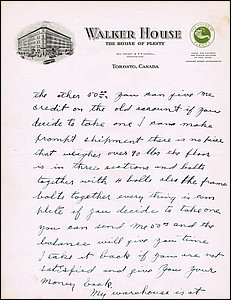 WALKER HOUSE
THE HOUSE OF PLENTY
TORONTO, CANADA
the other 50 00 you can give me
credit on the old account if you
decide to take one I can make
prompt shipment there is no piece
that weighes over 90 lbs the floor
is in three sections and bolts
together with 4 bolts also the frame
bolts together every thing is com
plete if you decide to take one
you can send me 00 and the
balance will give you time
I take it back if you are not
satisfied and give you your
money back
My warehouse is at